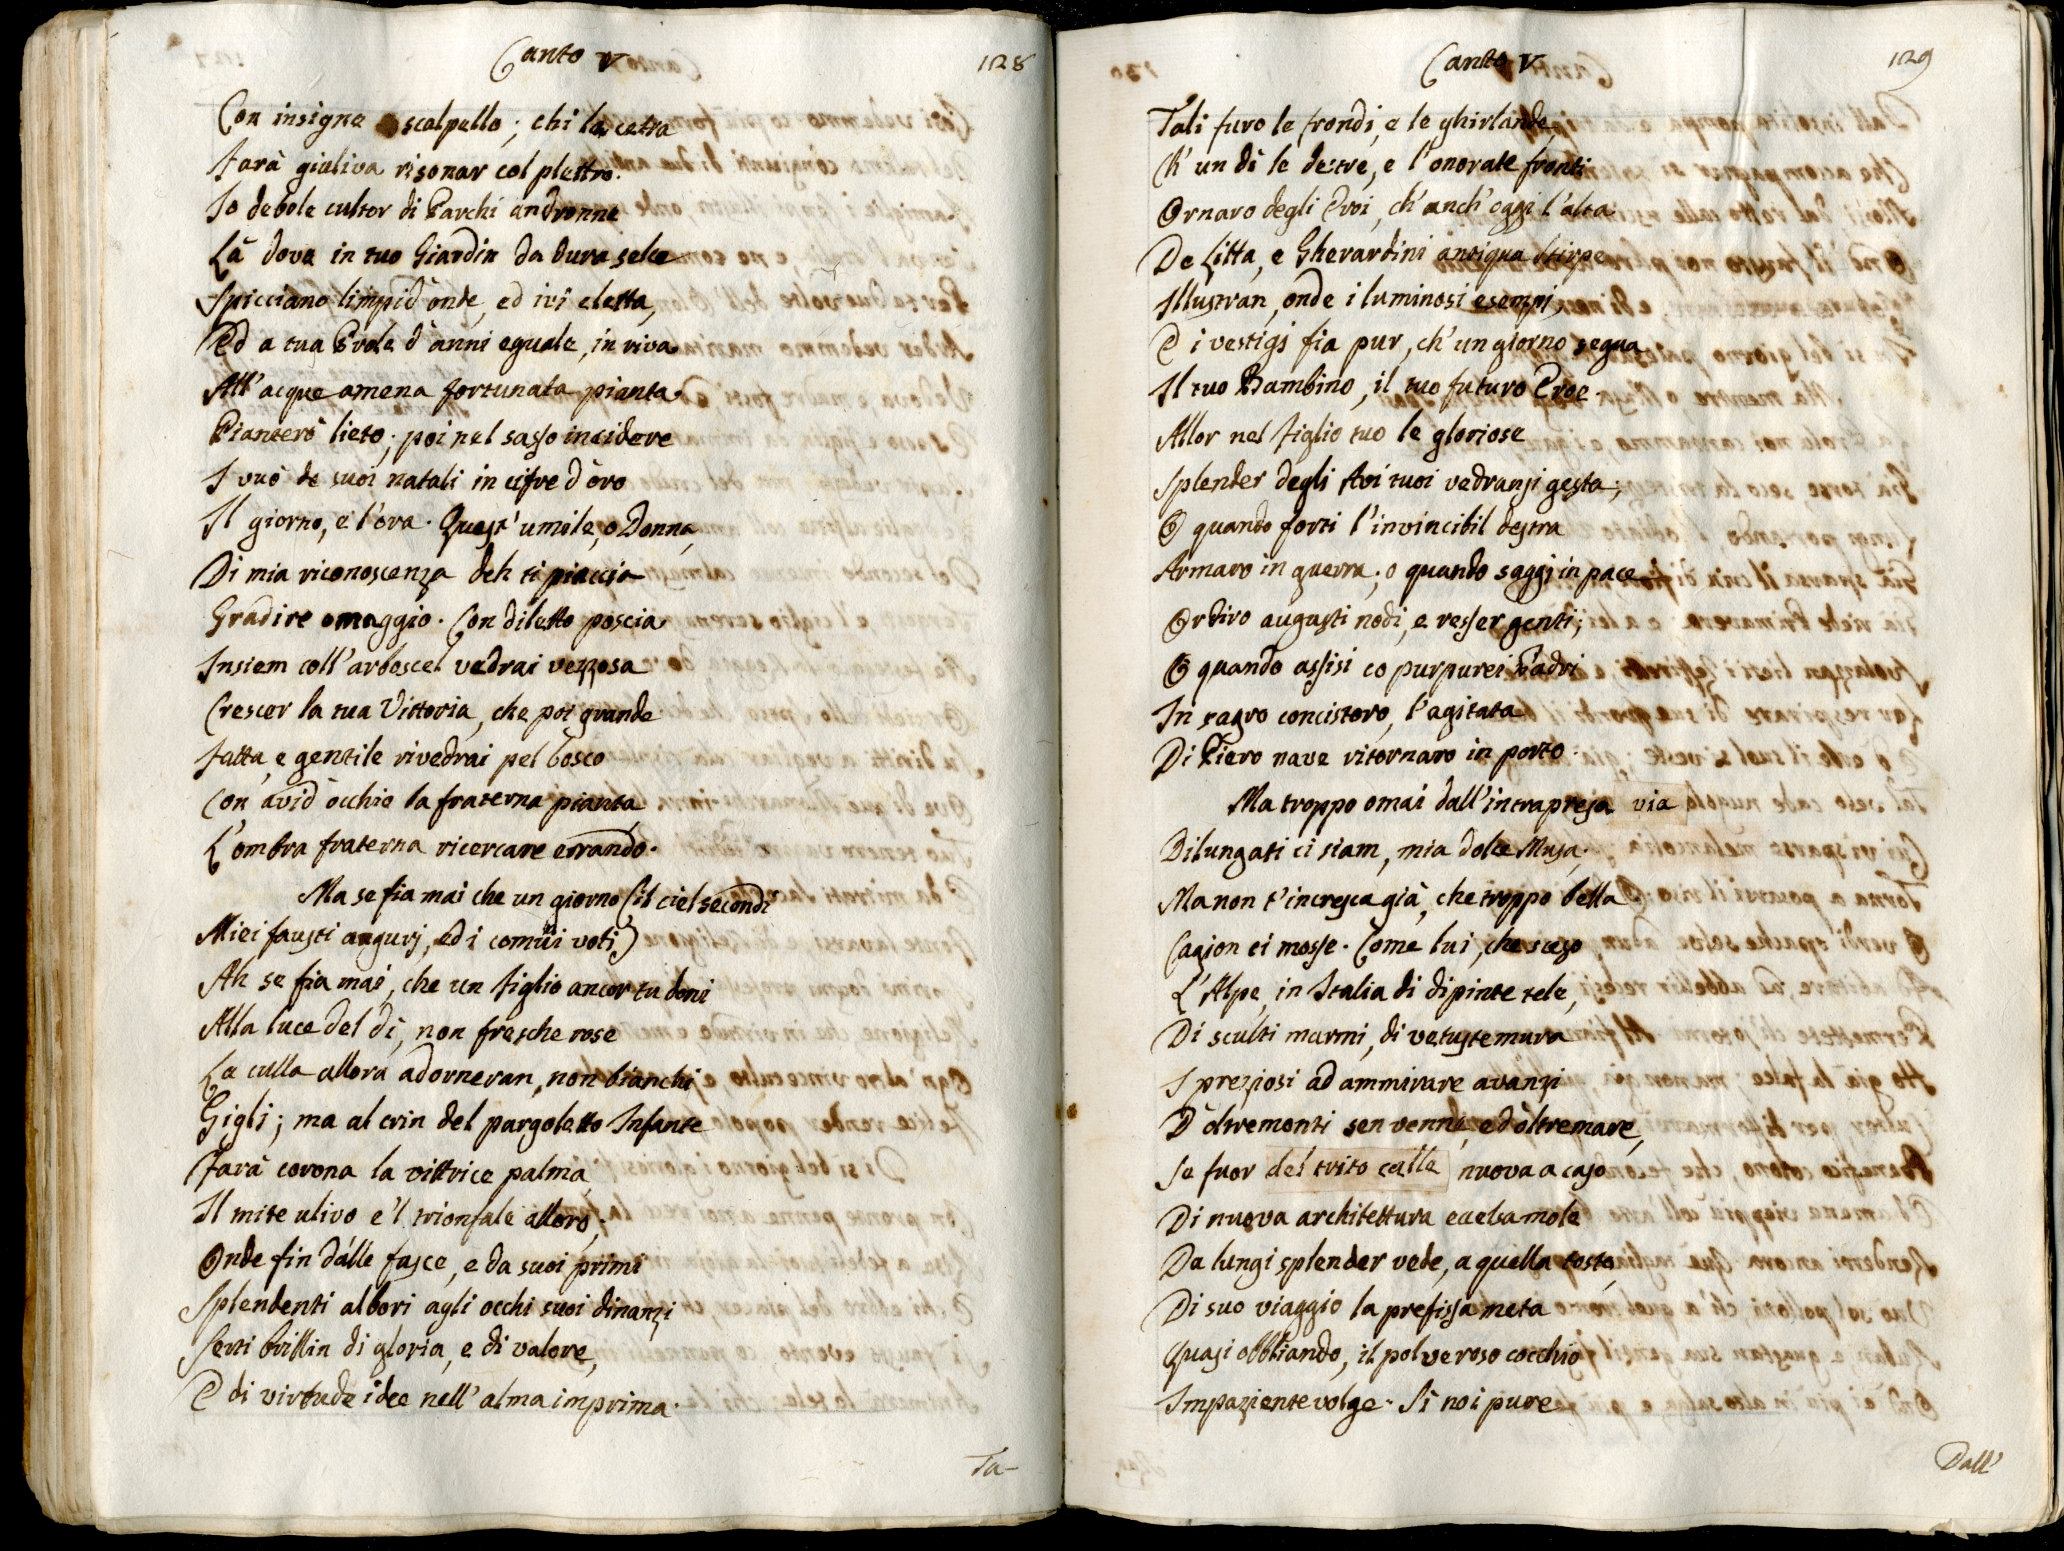 Canto V
128
Con insigne scalpello; chi la cetra
Farà giuliva risonar col plettro.
Io debole cultor di Parchi andronne
Là dove in tuo Giardin da dura selce
Spicciano limpid'onde, ed ivi eletta,
Ed a tua Prole d'anni eguale, in riva
All'acque amena fortunata pianta
Pianterò lieto; poi nel sasso incidere
I vuò de suoi natali in cifre d'oro
Il giorno, e l'ora. Quest'umile, o Donna,
Di mia riconoscenza deh ti piaccia
Gradire omaggio. Con diletto poscia
Insiem coll'arboscel vedrai vezzosa
Crescer la tua Vittoria, che poi grande
Fatta, e gentile rivedrai pel bosco
Con avid'occhio la fraterna pianta,
L'ombra fraterna ricercare errando.
Ma se fia mai che un giorno (il ciel secondi
Miei fausti augurj, ed i comuni voti)
Ah se fia mai, che un figlio ancor tu doni
Alla luce del dì, non fresche rose
La culla allora adorneran, non bianchi
Gigli; ma al crin del pargoletto Infante
Farà corona la vittrice palma,
Il mite ulivo e'l trionfale alloro;
Onde fin dalle fasce, e da suoi primi
Splendenti albori agli occhi suoi dinanzi
Serti brillin di gloria, e di valore,
E di virtude idee nell'alma imprima.
Ta-
Canto V
129
Tali furo le frondi, e le ghirlande,
Ch'un dì le destre, e l'onorate fronti
Ornaro degli Eroi, ch'anch'oggi l'alta
De Litta, e Gherardini antiqua Stirpe
Illustran, onde i luminosi esempi,
E i vestigj fia pur, ch'un giorno segua
Il tuo Bambino, il tuo futuro Eroe.
Allor nel figlio tuo le gloriose
Splender degli Avi tuoi vedransi gesta;
O quando forti l'invincibil destra
Armaro in guerra; o quando saggj in pace
Ordiro augusti nodi, e resser genti;
O quando assisi co purpurei Padri
In sagro concistoro, l'agitata
Di Piero nave ritornaro in porto.
Ma troppo omai dall'intrapresa via
Dilungati ci siam, mia dolce Musa;
Ma non t'incresca già, che troppo bella
Cagion ci mosse. Come lui, che sceso
L'Alpe, in Italia di dipinte tele,
Di sculti marmi, di vetuste mura
I preziosi ad ammirare avanzi
D'oltremonti sen venne, e d'oltremare,
Se fuor del trito calle nuova a caso
Di nuova architettura eccelsa mole
Da lungi splender vede, a quella tosto,
Di suo viaggio la prefissa meta
Quasi obbliando, il polveroso cocchio
Impaziente volge. Sì noi pure
Dall'